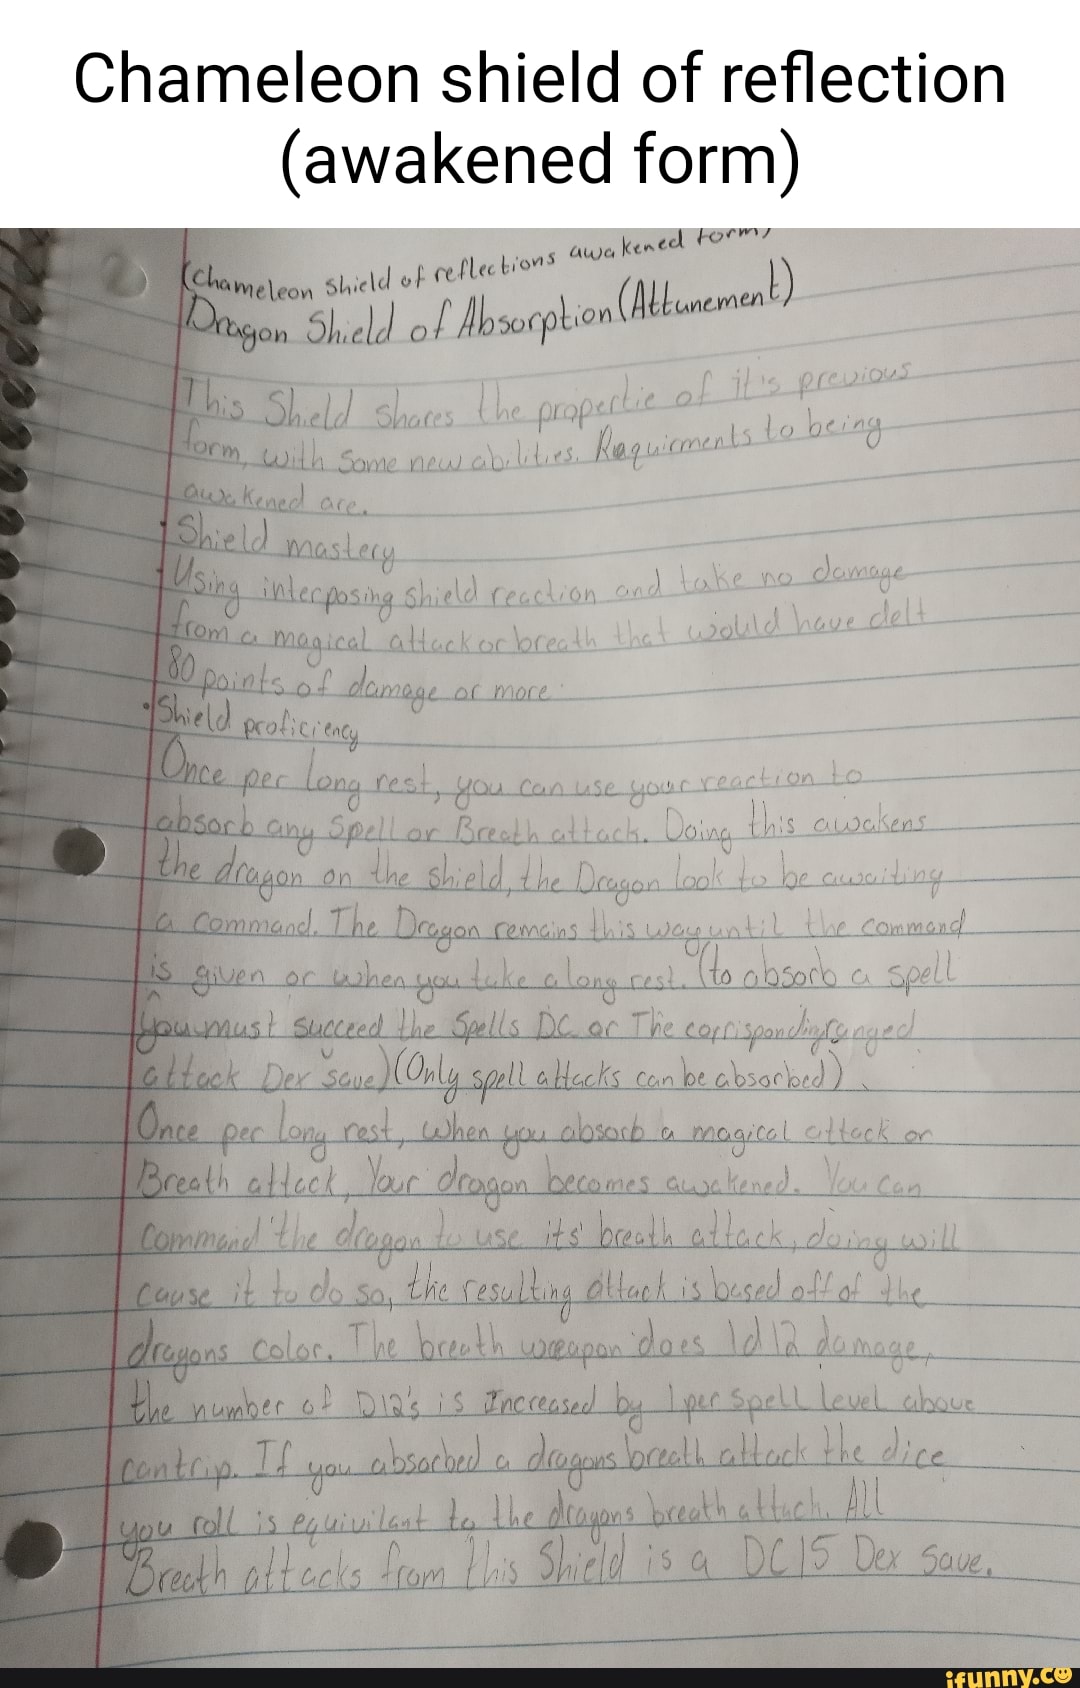 Chameleon shield of reflection
(awakened form)
(Chameleon Shield of reflections awakened form)
Dragon Shield of Absorption (Attunement)
This Shield shares the propertie of it's previous
form, with some new abilities. Requirments to being
awakened are.
• Shield mastery
• Using interposing shield reaction and take no damage
from a magical attack or breath that would have delt
80 points of damage or more
• Shield proficiency
Once per long rest, you can use your reaction to
absorb any Spell or Breath attack. Doing this awakens
the dragon on the shield, the Dragon look to be awaiting
a command. The Dragon remains this way until the command
is given or when you take a long rest. (to absorb a spell
you must succeed the Spells DC or The corrisponding ranged
attack Dex save) (Only spell attacks can be absorbed)
Once per long rest, when you absorb a magical attack or
Breath attack, Your dragon becomes awakened. You can
command the dragon to use its' breath attack, doing will
cause it to do so, the resulting attack is based off of the
dragons color. The breath weapon does 1d12 damage,
the number of D12's is Increased by 1 per spell level above
cantrip. If you absorbed a dragons breath attack the dice
you roll is equivilant to the dragons breath attach. All
Breath attacks from this Shield is a DC 15 Dex save.
ifunny.co